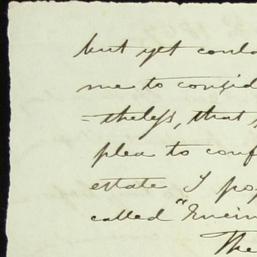 but yet could
me to consid
=theless, that
plea to conf
estate I pro
called "Encin
The